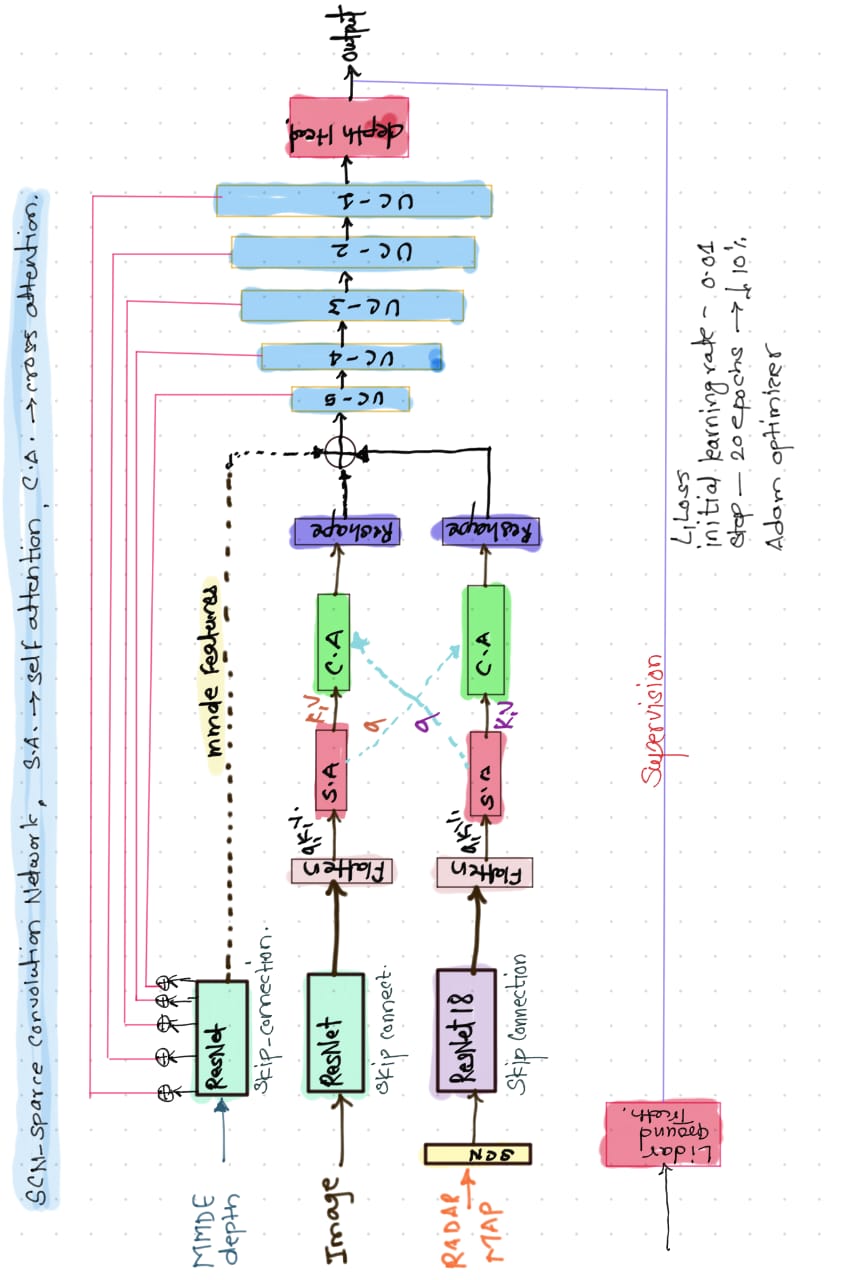 SCN-sparce convolution Network, S.A. → self attention, C.A. → cross attention.
MMDE
depth
ResNet
skip-connection.
mmde features
Image
ResNet
skip connect.
Flatten
q,K,V.
S.A
K,V
C.A
Reshape
q
q
RADAR
MAP
SCN
ResNet 18
Skip Connection
Flatten
q,K,V,
S.A
K,V
C.A
Reshape
UC-5
UC-4
UC-3
UC-2
UC-1
depth Head.
output
Lidar
Ground
Truth.
Supervision
L1 Loss
initial learning rate - 0.01
step — 20 epochs → ↓ 10%
Adam optimizer